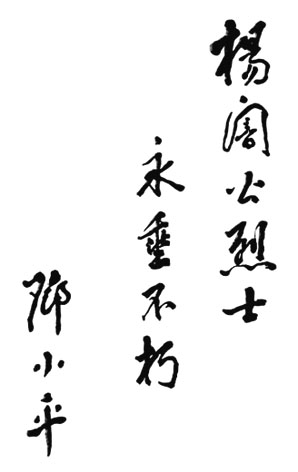 楊闇公烈士
永垂不朽
鄧小平